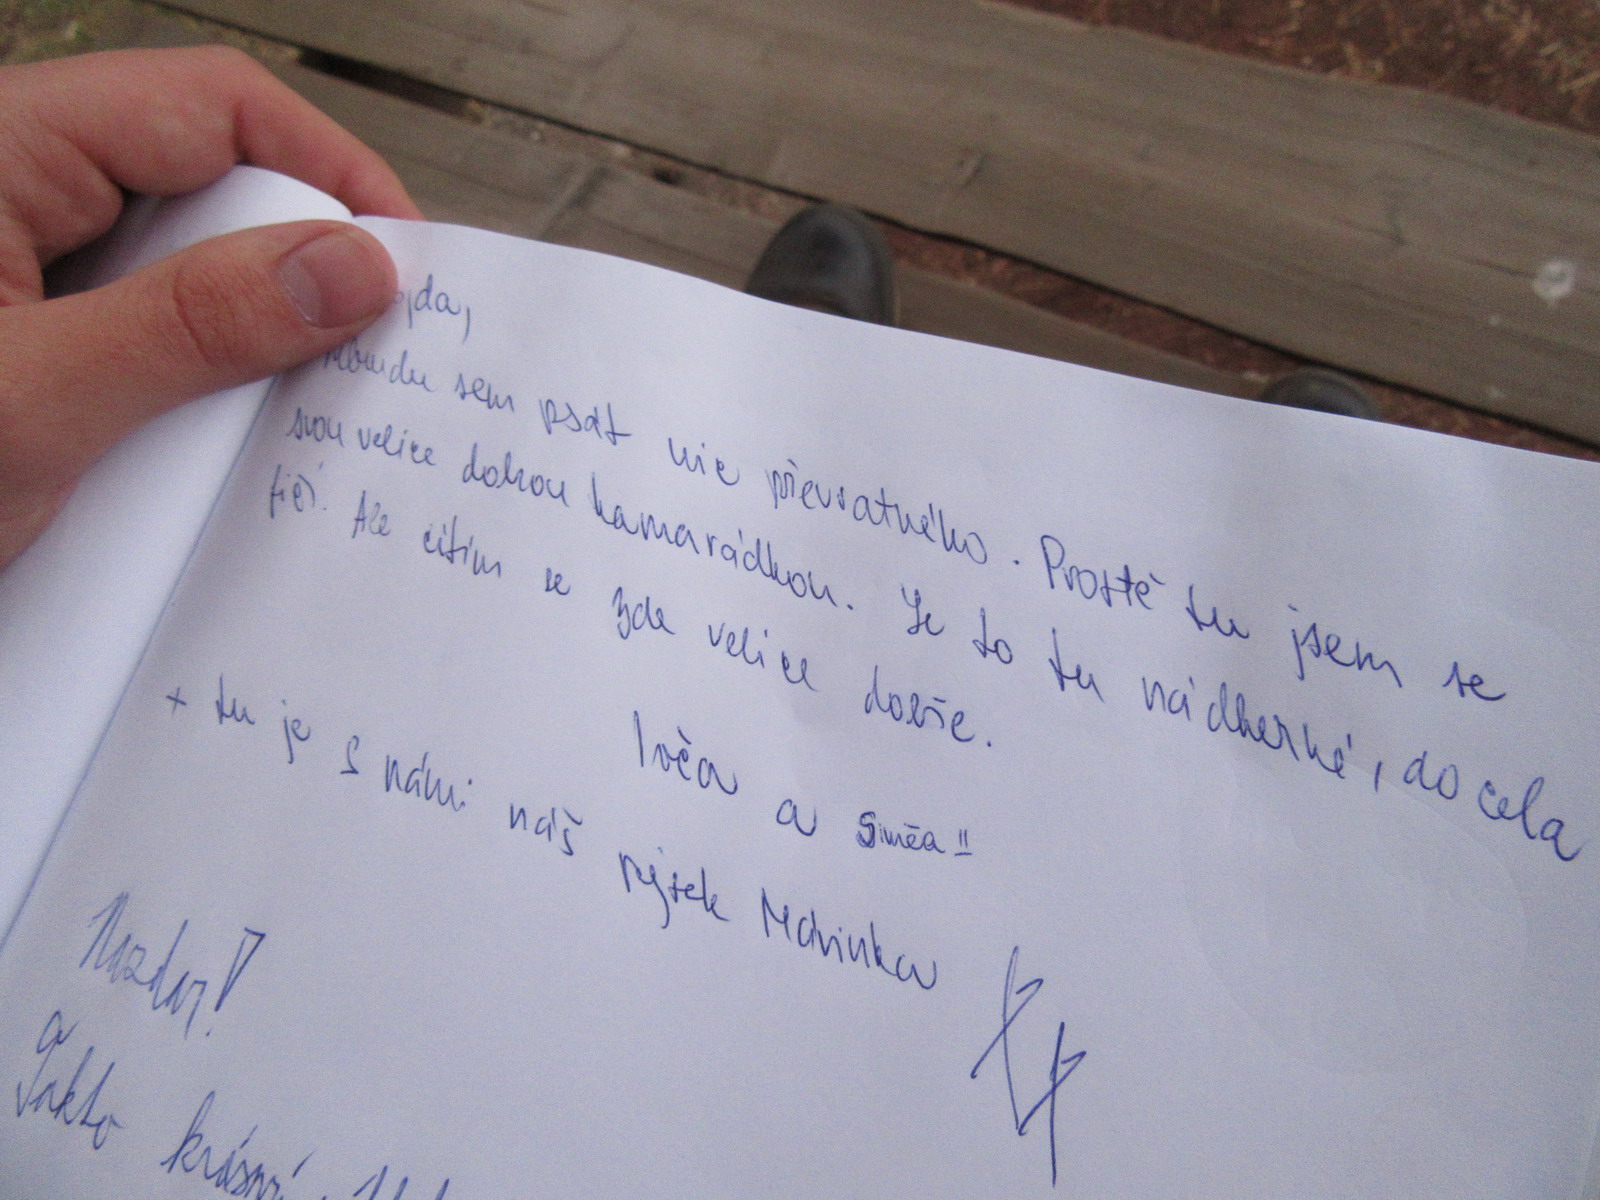 nebudu sem psát nic převratného. Prostě tu jsem se
svou velice dobrou kamarádkou. Je to tu nádherné, docela
fičí. Ale cítím se zde velice dobře.
Ivča a Simča!!
+ tu je s námi náš pejsek Márinka
Nazdar!
Takto krásný